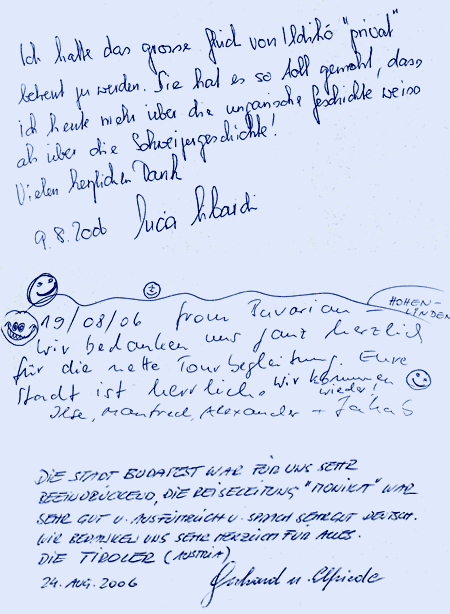 Ich hatte das grosse Glück von Ildikó "privat"
betreut zu werden. Sie hat es so toll gemacht, dass
ich heute mehr über die ungarische Geschichte weiss
als über die Schweizergeschichte!
Vielen herzlichen Dank
9.8.2006 Lucia
19/08/06 from Bavarian –
HOHEN-
LINDEN
Wir bedanken uns ganz herzlich
für die nette Tourbegleitung. Eure
Stadt ist herrlich. Wir kommen
wieder!
Ilse, Manfred, Alexander +
DIE STADT BUDAPEST WAR FÜR UNS SEHR
BEEINDRUCKEND, DIE REISELEITUNG "MONIKA" WAR
SEHR GUT U. AUSFÜHRLICH U. SPRACH SEHR GUT DEUTSCH.
WIR BEDANKEN UNS SEHR HERZLICH FÜR ALLES.
DIE TIROLER (AUSTRIA)
24. AUG. 2006 Gerhard u. Elfriede